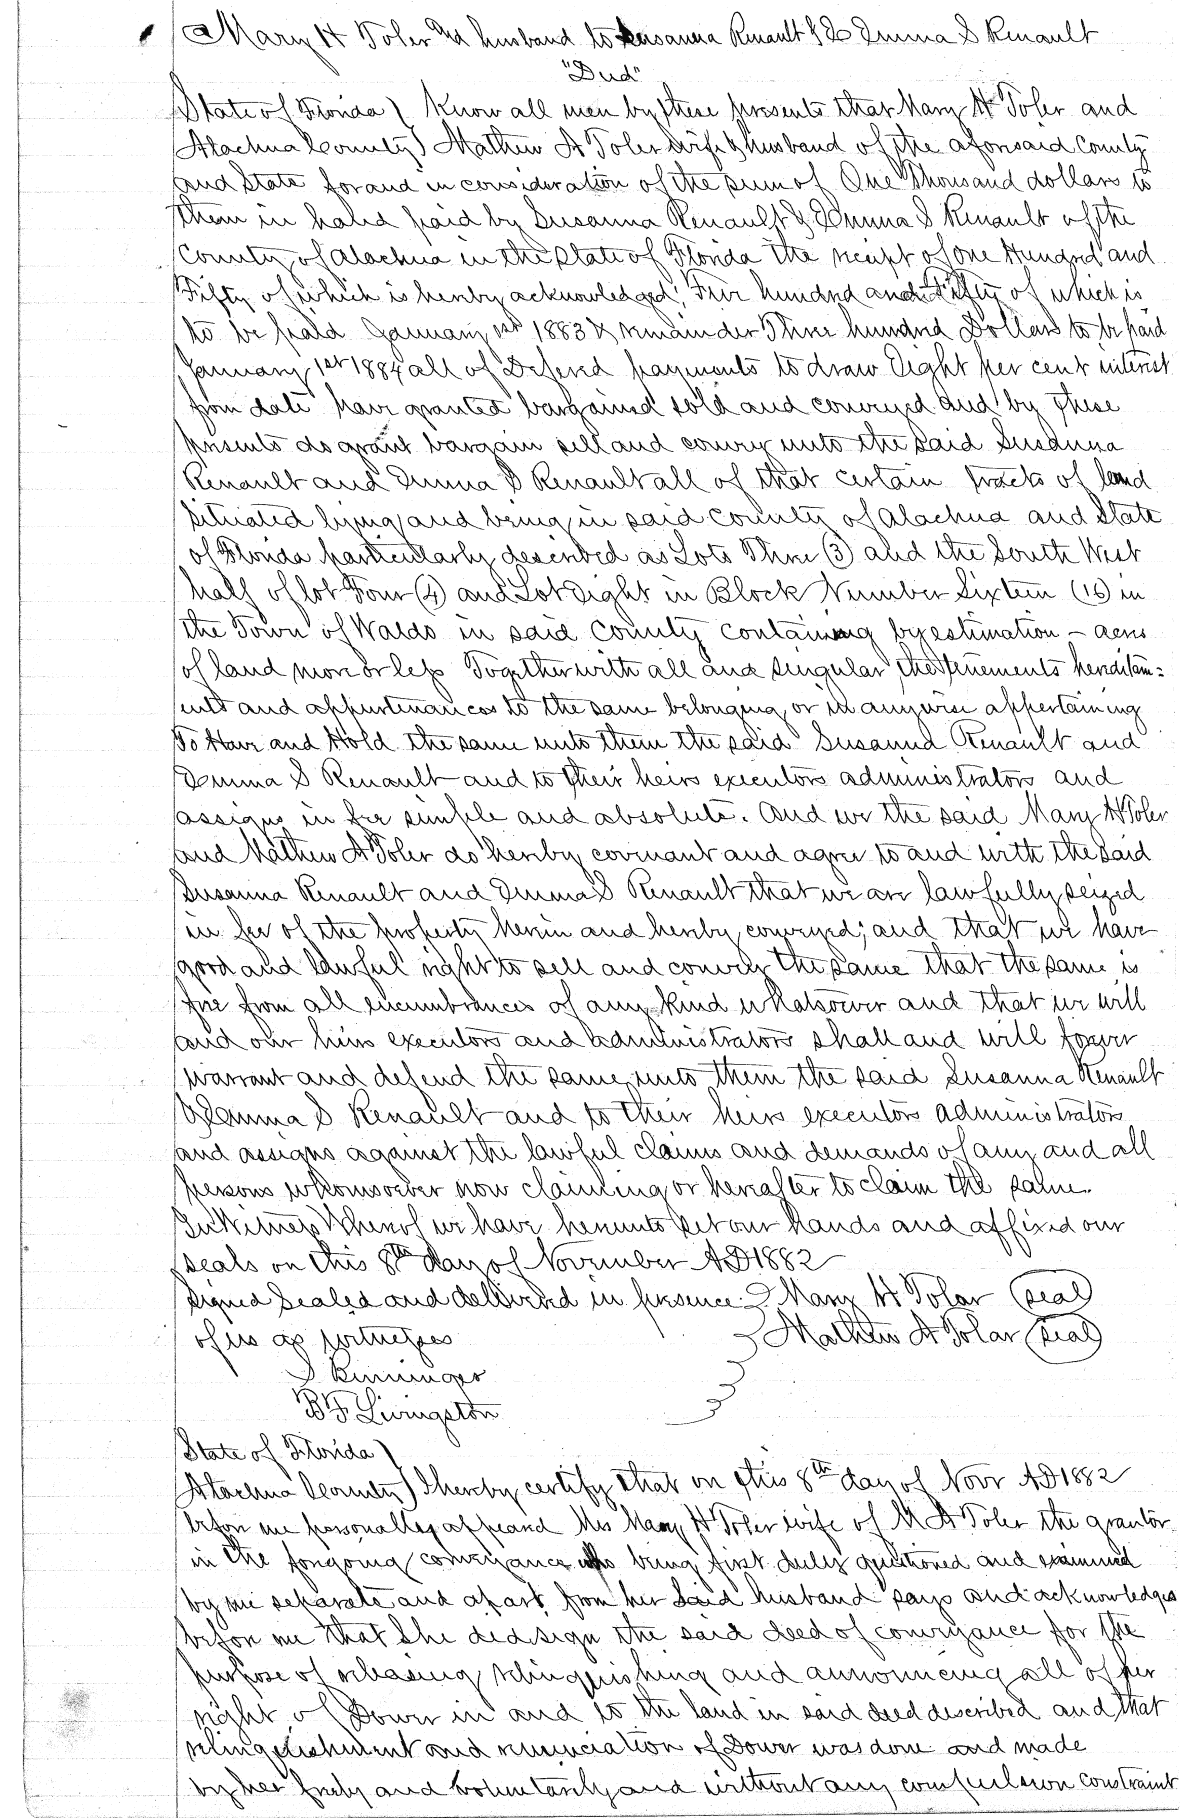 Mary H Toler and husband to Susanna Renault & to Emma S Renault
"Deed"
State of Florida) Know all men by these presents that Mary H Toler and
Alachua County) Mathew A Toler wife & husband of the aforesaid County
and State for and in consideration of the sum of One Thousand dollars to
them in hand paid by Susanna Renault & Emma S Renault of the
County of Alachua in the State of Florida the receipt of One Hundred and
Fifty of which is hereby acknowledged, Five hundred and Fifty of which is
to be paid January 1st 1883 & remainder Three hundred Dollars to be paid
January 1st 1884 all of Defered payments to draw Eight per cent interest
from date have granted bargained sold and conveyed and by these
presents do grant bargain sell and convey unto the said Susanna
Renault and Emma S Renault all of that certain tracts of land
situated lying and being in said County of Alachua and State
of Florida particularly described as Lots Three (3) and the South West
half of lot Four (4) and Lot Eight in Block Number Sixteen (16) in
the Town of Waldo in said County containing by estimation – acres
of land more or less Together with all and singular the tenements heriditam=
ents and appurtenances to the same belonging or in anywise appertaining
To Have and Hold the same unto them the said Susanna Renault and
Emma S Renault and to their heirs executors administrators and
assigns in fee simple and absolute. And we the said Mary H Toler
and Mathew A Toler do hereby covenant and agree to and with the said
Susanna Renault and Emma S Renault that we are lawfully seized
in fee of the property herein and hereby conveyed; and that we have
good and lawful right to sell and convey the same that the same is
free from all encumbrances of any kind whatsoever and that we will
and our heirs executors and administrators shall and will forever
warrant and defend the same unto them the said Susanna Renault
& Emma S Renault and to their heirs executors administrators
and assigns against the lawful claims and demands of any and all
persons whomsoever now claiming or hereafter to claim the same.
In Witness Whereof we have hereunto set our hands and affixed our
seals on this 8th day of November AD 1882
Signed Sealed and delivered in presence Mary H Tolar (seal)
of us as witnesses Mathew A Tolar (seal)
B F Livingston
State of Florida)
Alachua County) I hereby certify that on this 8th day of Novr AD 1882
before me personally appeard Mrs Mary H Toler wife of M A Toler the grantor
in the foregoing conveyance who being first duly questioned and examined
by me separate and apart from her said husband says and acknowledges
before me that she did sign the said deed of conveyance for the
purpose of releasing relinquishing and announcing all of her
right of Dower in and to the land in said deed described and that
relinquishment and renunciation of Dower was done and made
by her freely and voluntarily and without any compulsion constraint